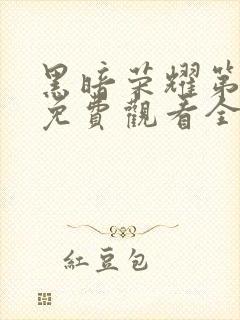 黑暗荣耀第
免費觀看全
紅豆包